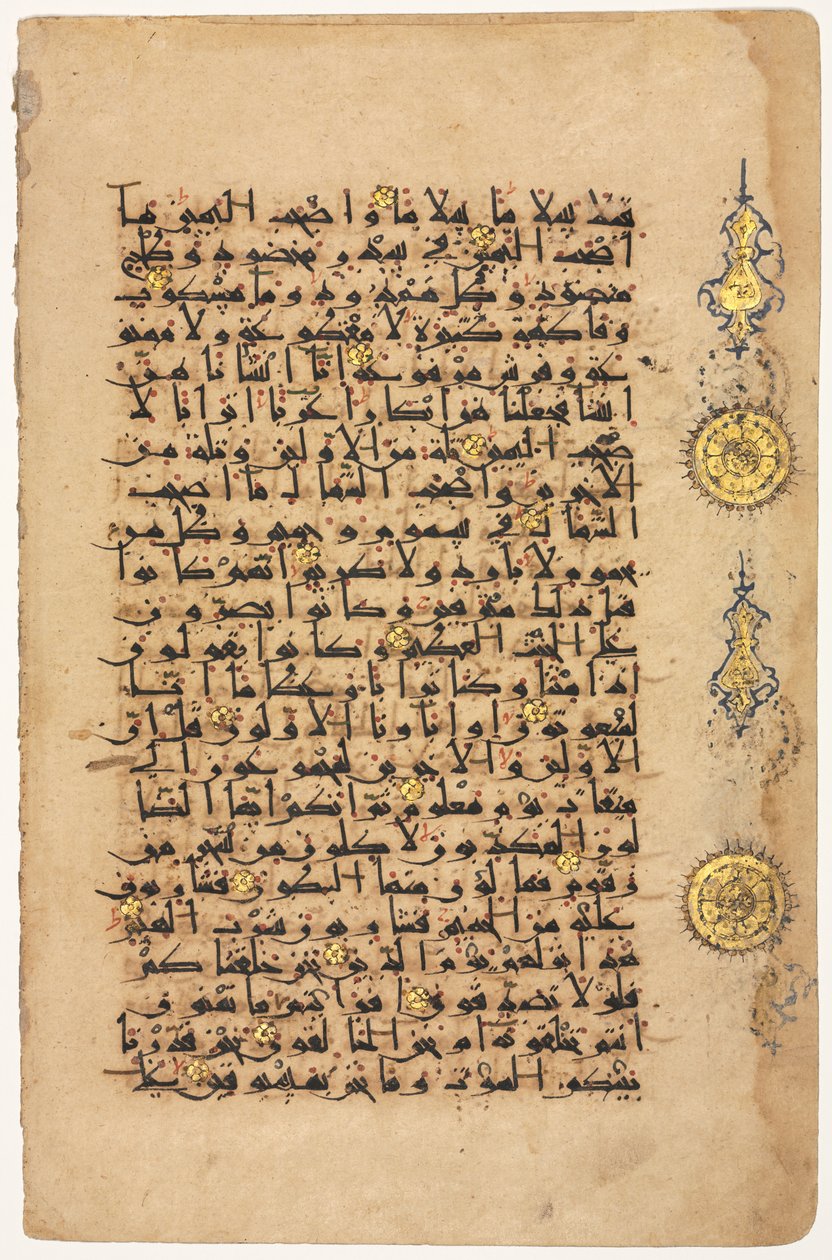 قيلا سلاما سلاما واصحب اليمين ما
اصحب اليمين في سدر مخضود وطلح
منضود وظل ممدود وما مسكوب
وفاكهة كثيرة لا مقطوعة ولا ممنو
عة وفرش مرفوعة انا انشانا هن
انشا فجعلناهن ابكارا عربا اترابا لا
صحب اليمين ثلة من الاولين وثلة من
الاخرين واصحب الشمال ما اصحب
الشمال في سموم وحميم وظل من
يحموم لا بارد ولا كريم انهم كانوا
قبل ذلك مترفين وكانوا يصرون
على الحنث العظيم وكانوا يقولون
اذا متنا وكنا ترابا وعظاما انا
لمبعوثون او اباونا الاولون قل ان
الاولين والاخرين لمجموعون الى
ميقات يوم معلوم ثم انكم ايها الضا
لون المكذبون لاكلون من شجر من
زقوم فمالون منها البطون فشاربون
عليه من الحميم فشاربون شرب الهيم
هذا نزلهم يوم الدين نحن خلقناكم
فلولا تصدقون افرايتم ما تمنون
انتم تخلقونه ام نحن الخالقون نحن قدرنا
بينكم الموت وما نحن بمسبوقين على